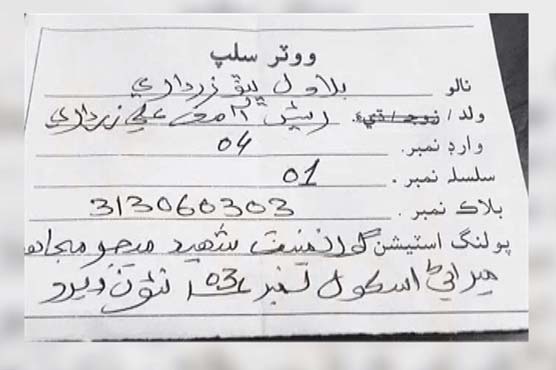 ووٽر سلپ
نالو بلاول ڀٽو زرداري
ولد/زوجه/ڌيءُ. رئيس آصف علي زرداري
وارڊ نمبر. 04
سلسله نمبر. 01
بلاڪ نمبر. 313060303
پولنگ اسٽيشن گورنمينٽ شهيد ميجر مجاهد
ميراڻي اسڪول نمبر 03 نئون ديرو